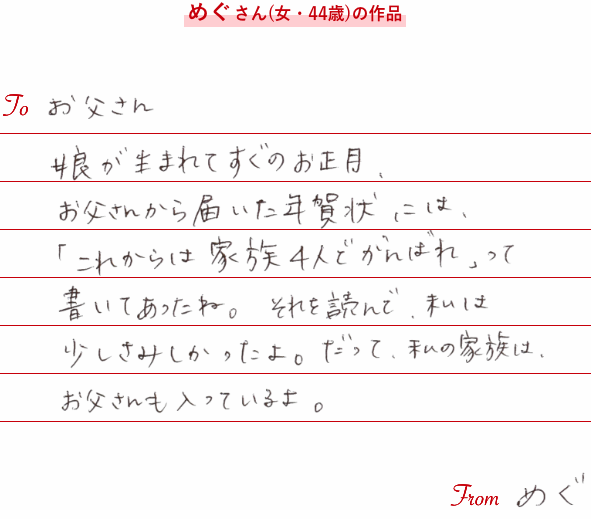 めぐさん(女・44歳)の作品
To お父さん
娘が生まれてすぐのお正月、
お父さんから届いた年賀状には、
「これからは家族4人でがんばれ」って
書いてあったね。それを読んで、私は
少しさみしかったよ。だって、私の家族は、
お父さんも入っているよ。
From めぐ